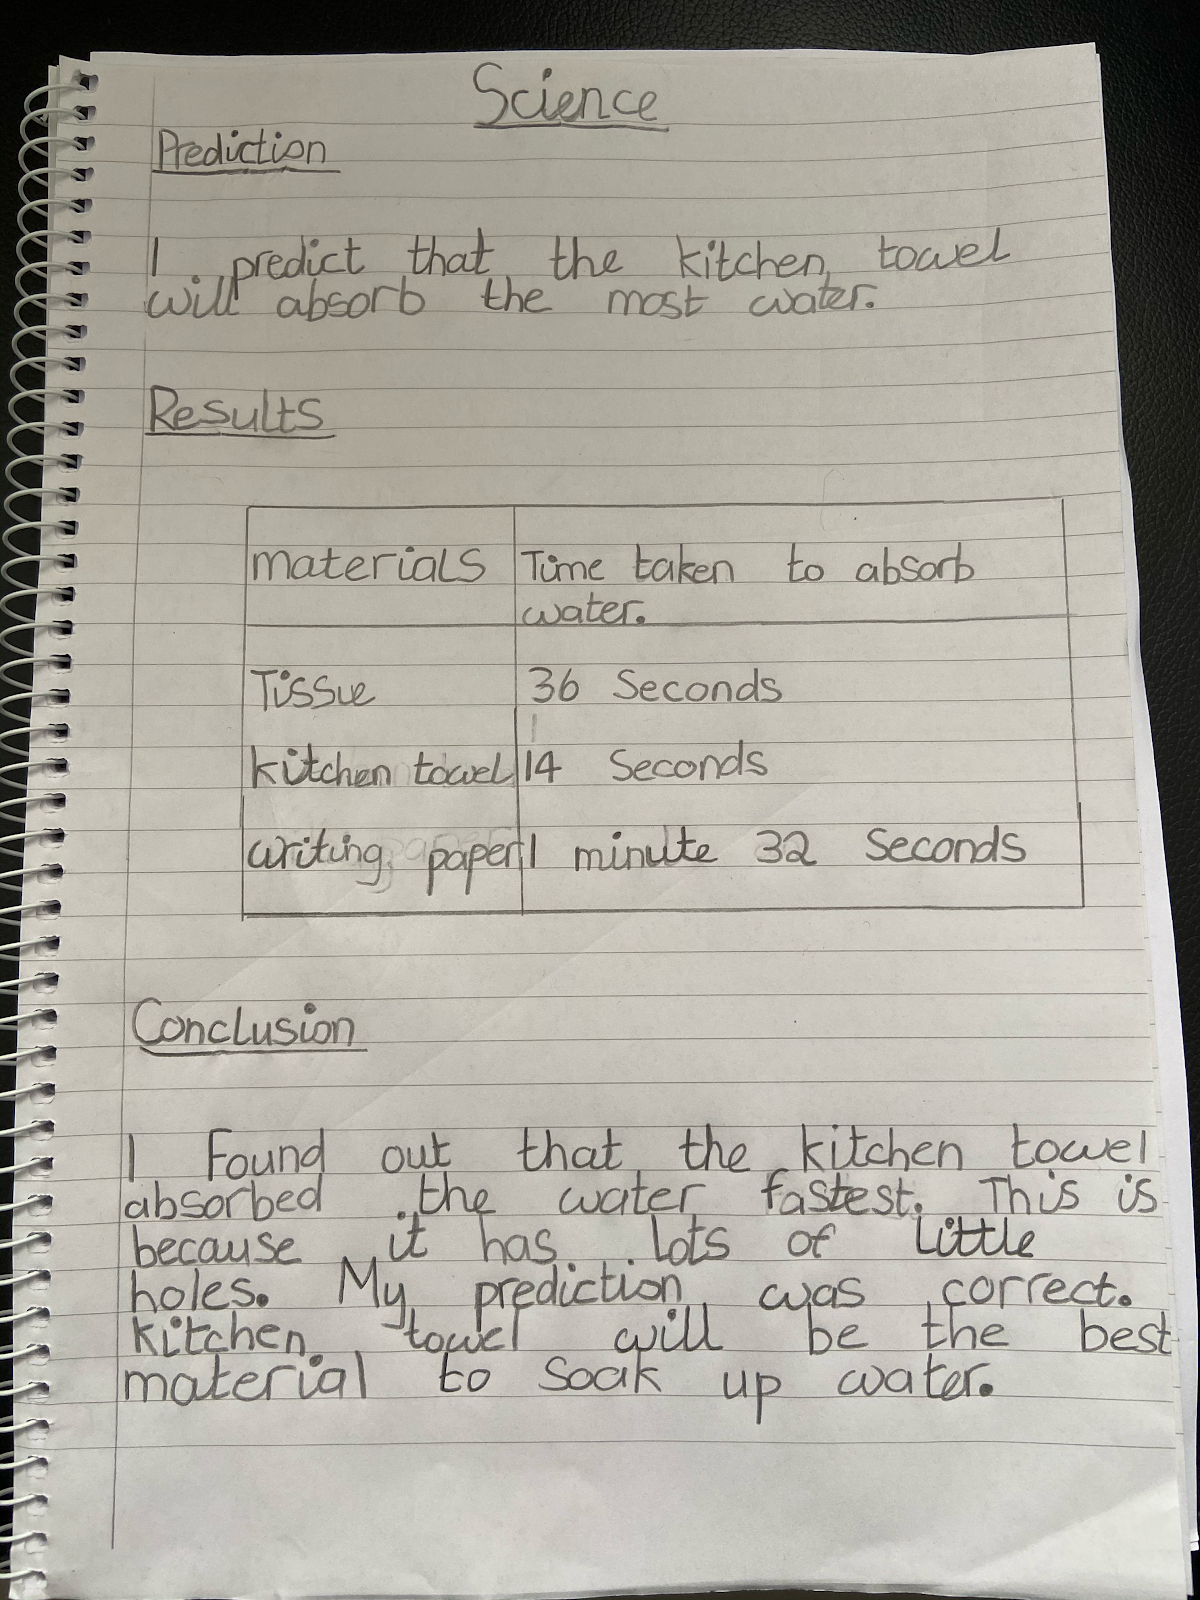 Science
Prediction
I predict that the kitchen towel
will absorb the most water.
Results
materials Time taken to absorb
water.
Tissue 36 Seconds
kitchen towel 14 Seconds
writing paper 1 minute 32 Seconds
Conclusion
I Found out that the kitchen towel
absorbed the water fastest. This is
because it has lots of little
holes. My prediction was correct.
kitchen towel will be the best
material to soak up water.